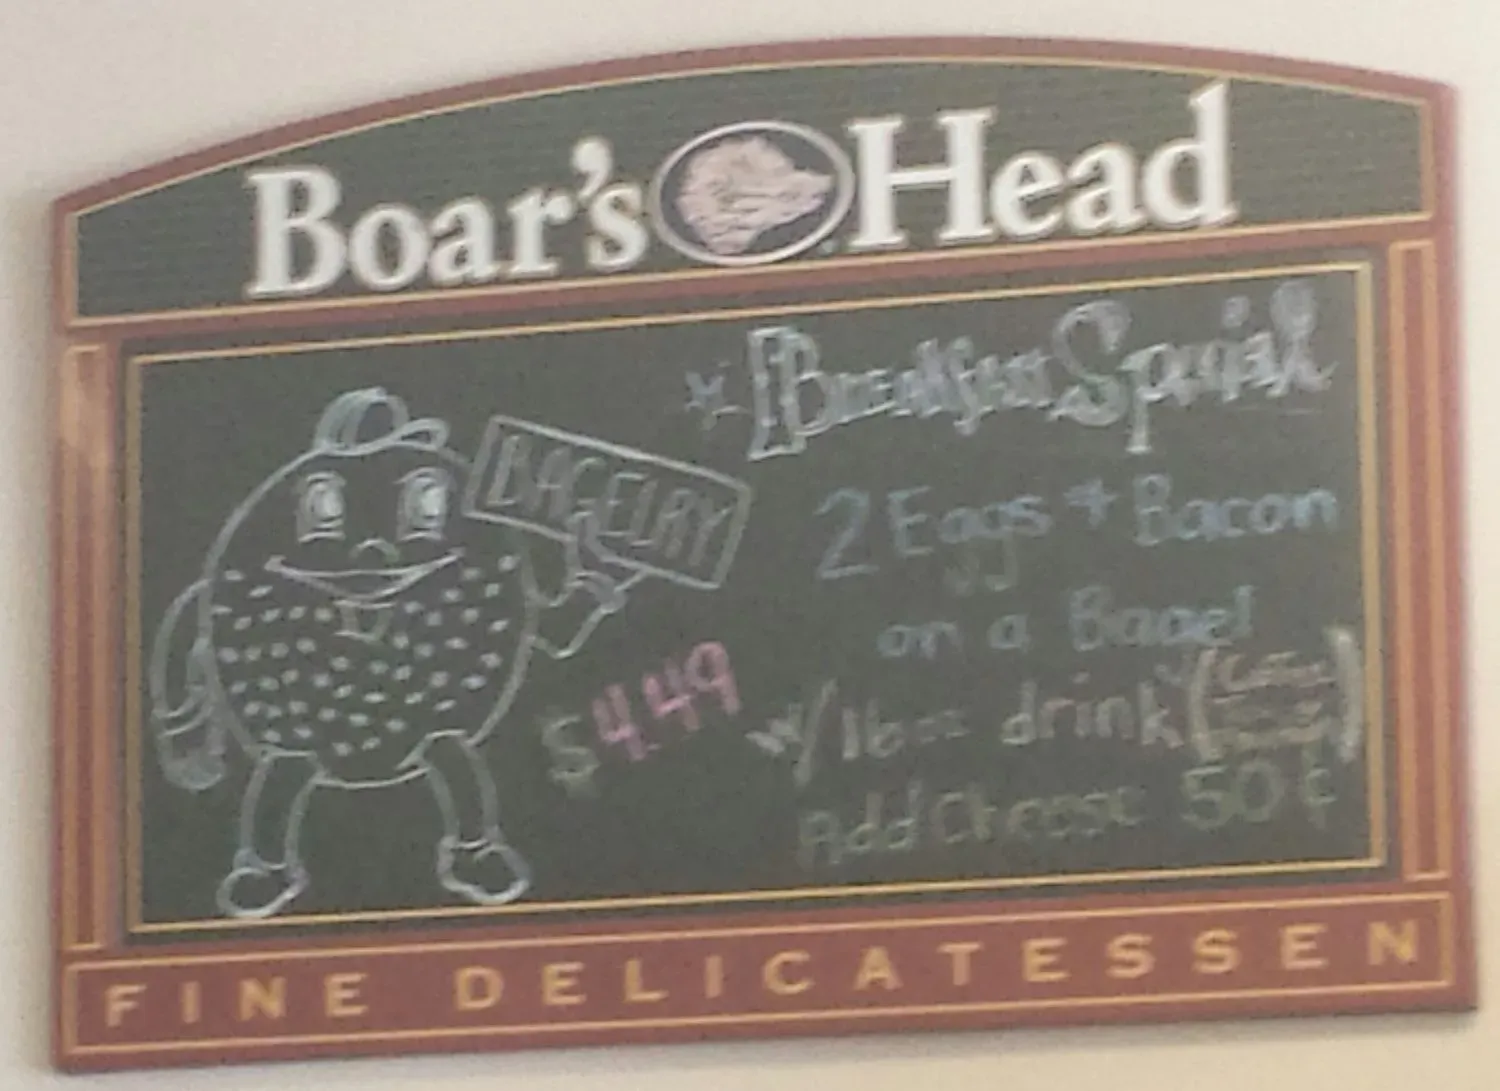 Boar's Head
Breakfast Special
BAGELRY
2 Eggs + Bacon
on a Bagel
$4.49
w/ 16oz drink (Coffee
Add Cheese 50¢
FINE DELICATESSEN